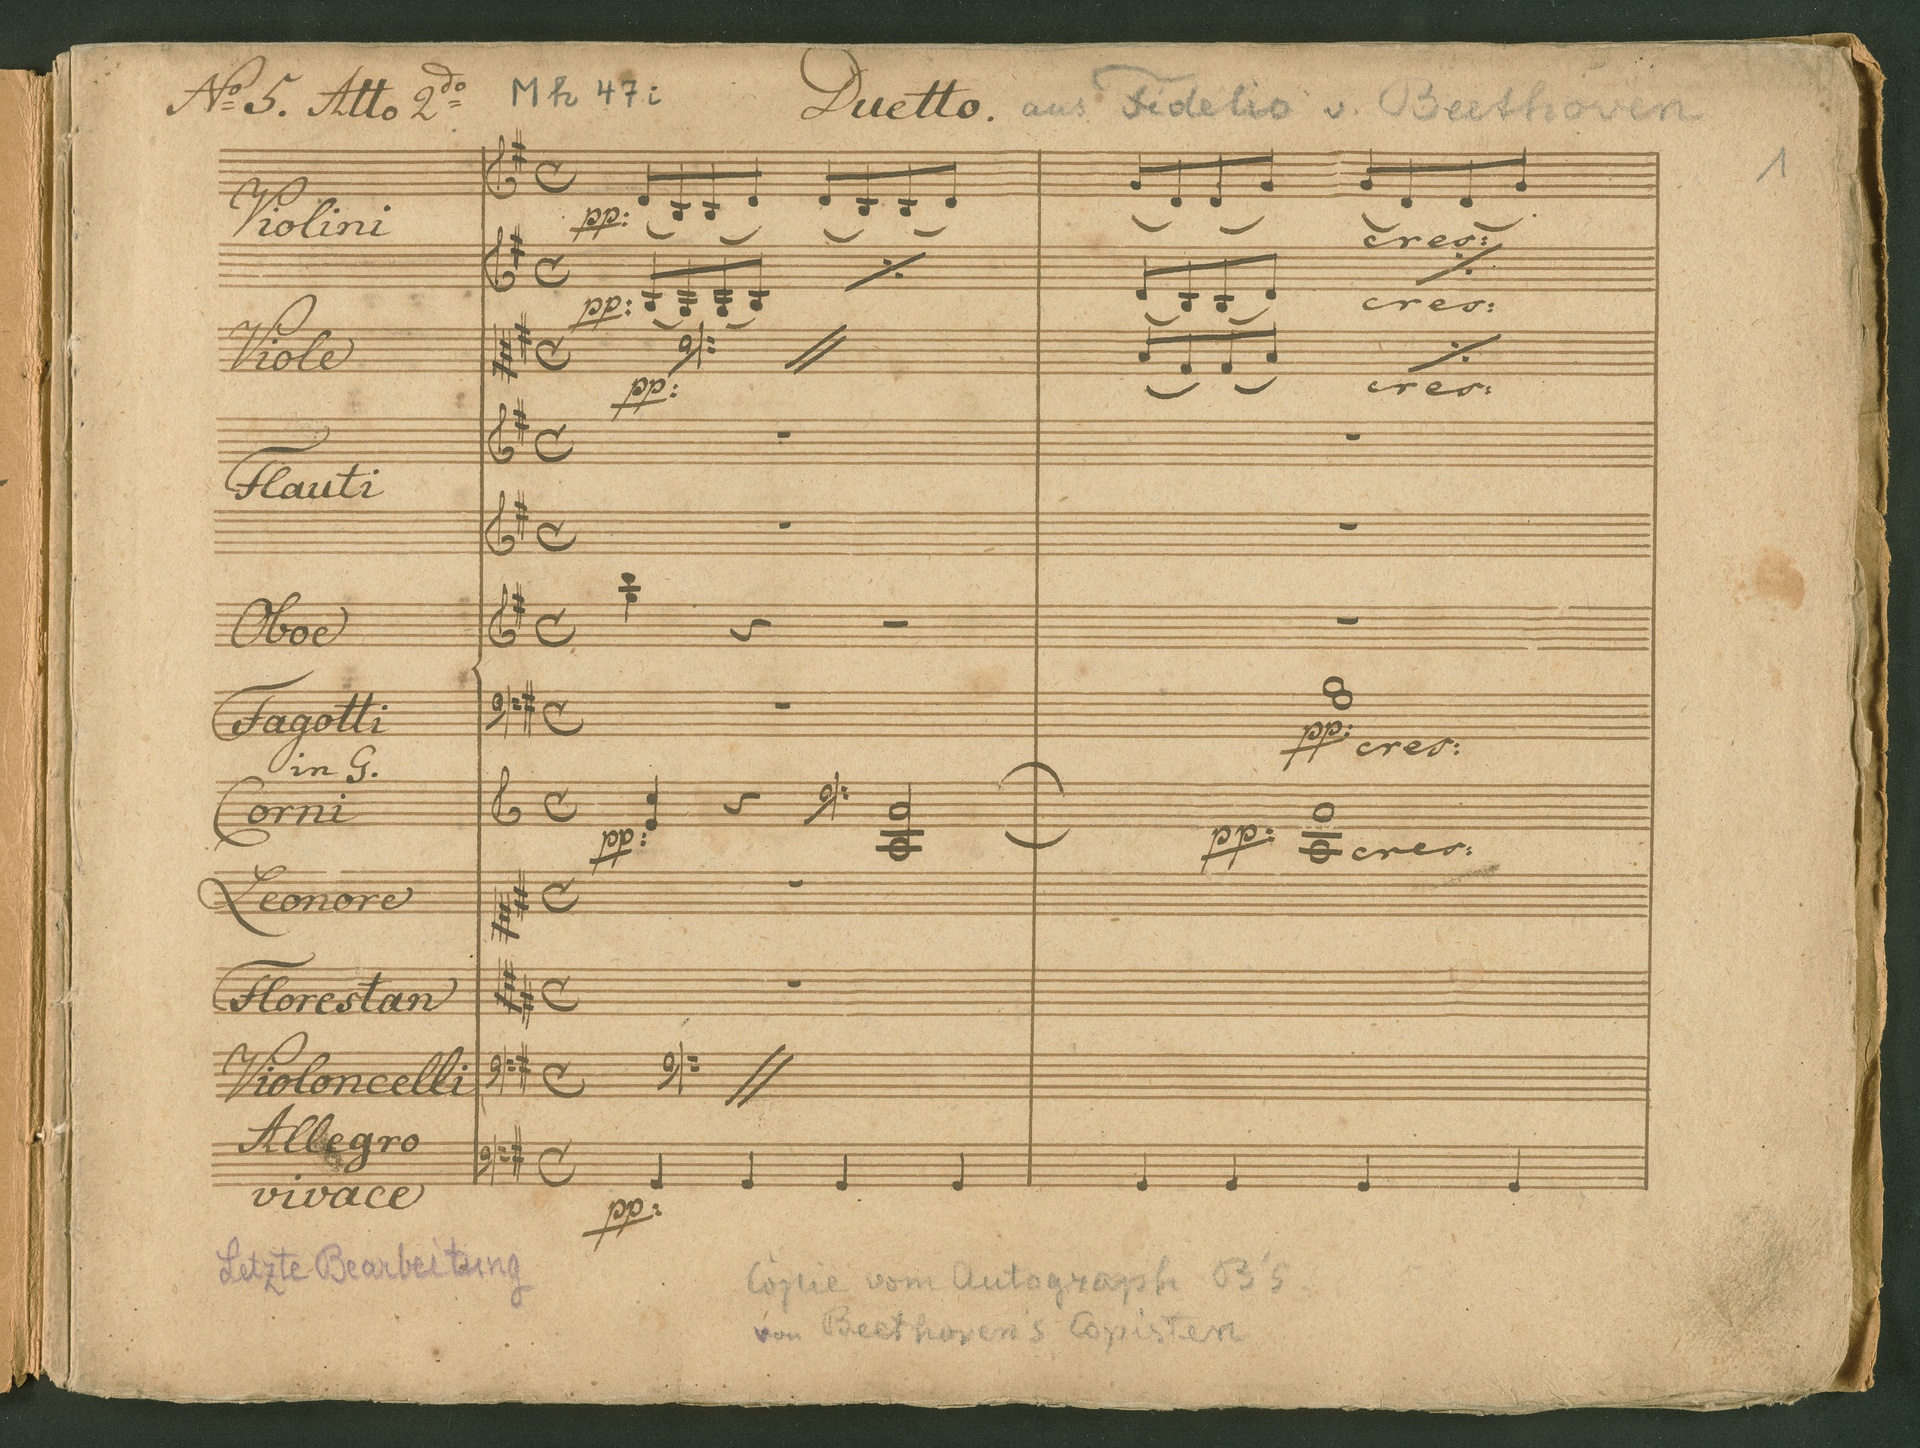 No 5. Atto 2do Mh 47i Duetto. aus Fidelio v. Beethoven
1
Violini
pp:
cres:
pp:
cres:
Viole
pp:
cres:
Flauti
Oboe
Fagotti
pp: cres:
in G.
Corni
pp:
pp: cres:
Leonore
Florestan
Violoncelli
Allegro
vivace
pp:
Letzte Bearbeitung
Copie vom Autograph B's
von Beethovens Copisten